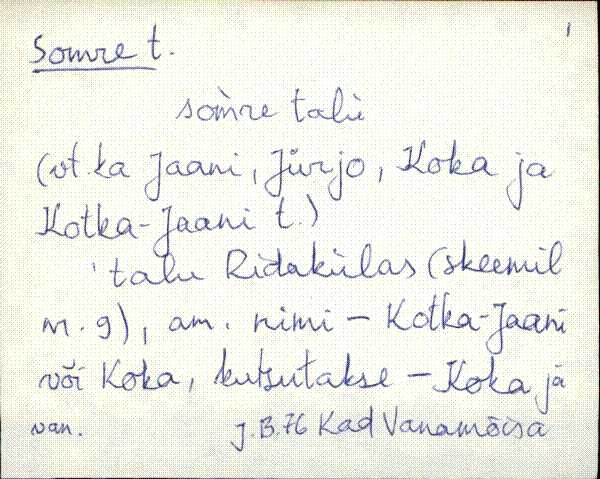 1
Somre t.
som̀re talu
(vt. ka Jaani, Jürjo, Koka ja
Kotka-Jaani t.)
talu Ridakülas (skeemil
nr. 9), am. nimi – Kotka-Jaani
või Koka, kutsutakse – Koka ja
van. J.B. 76 Kad Vanamõisa